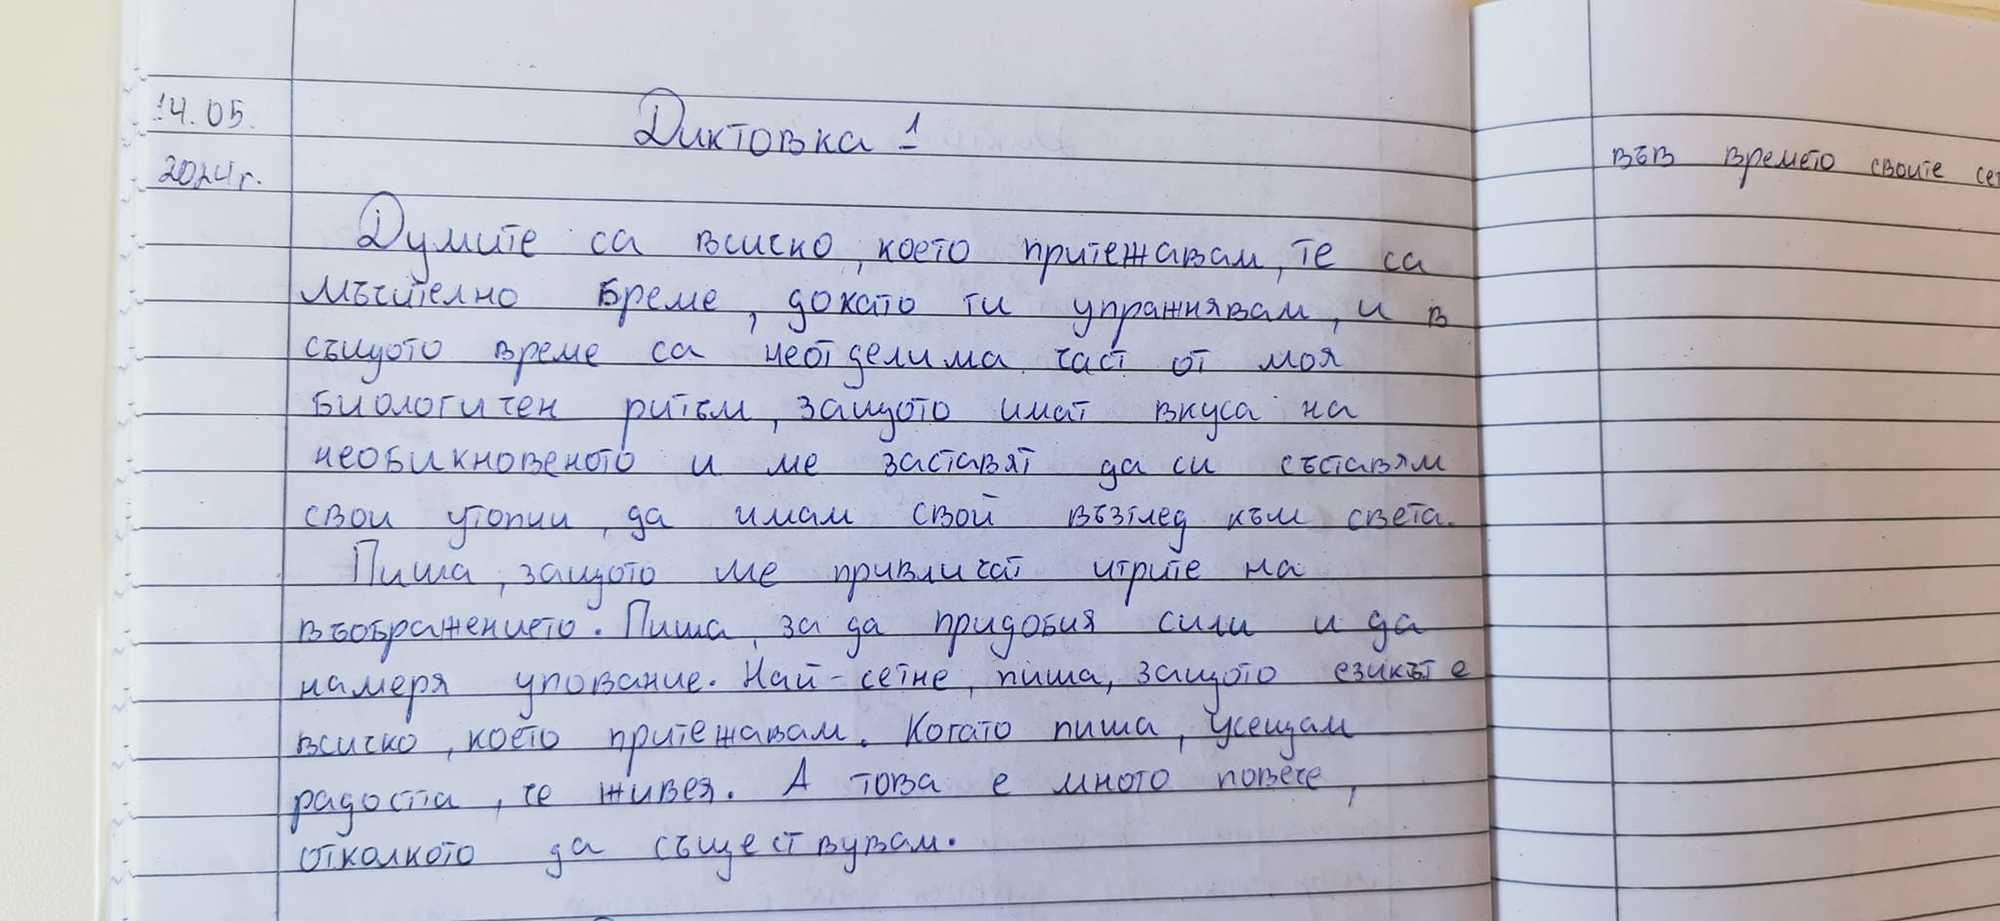 14.05.
2024г.
Диктовка 1
Думите са всиско, което притежавам, те са
мъчително бреме, докато ги упражнявам, и в
същото време са неотделима част от моя
биологичен ритъм, защото имат вкуса на
необикновеното и ме заставят да си съставям
свои утопии, да имам свой възглед към света.
Пиша, защото ме привличат игрите на
въображението. Пиша, за да придобия сили и да
намеря упование. Най-сетне, пиша, защото езикът е
всичко, което притежавам. Когато пиша, усещам
радостта, че живея. А това е много повече,
отколкото да съществувам.
във времето своите